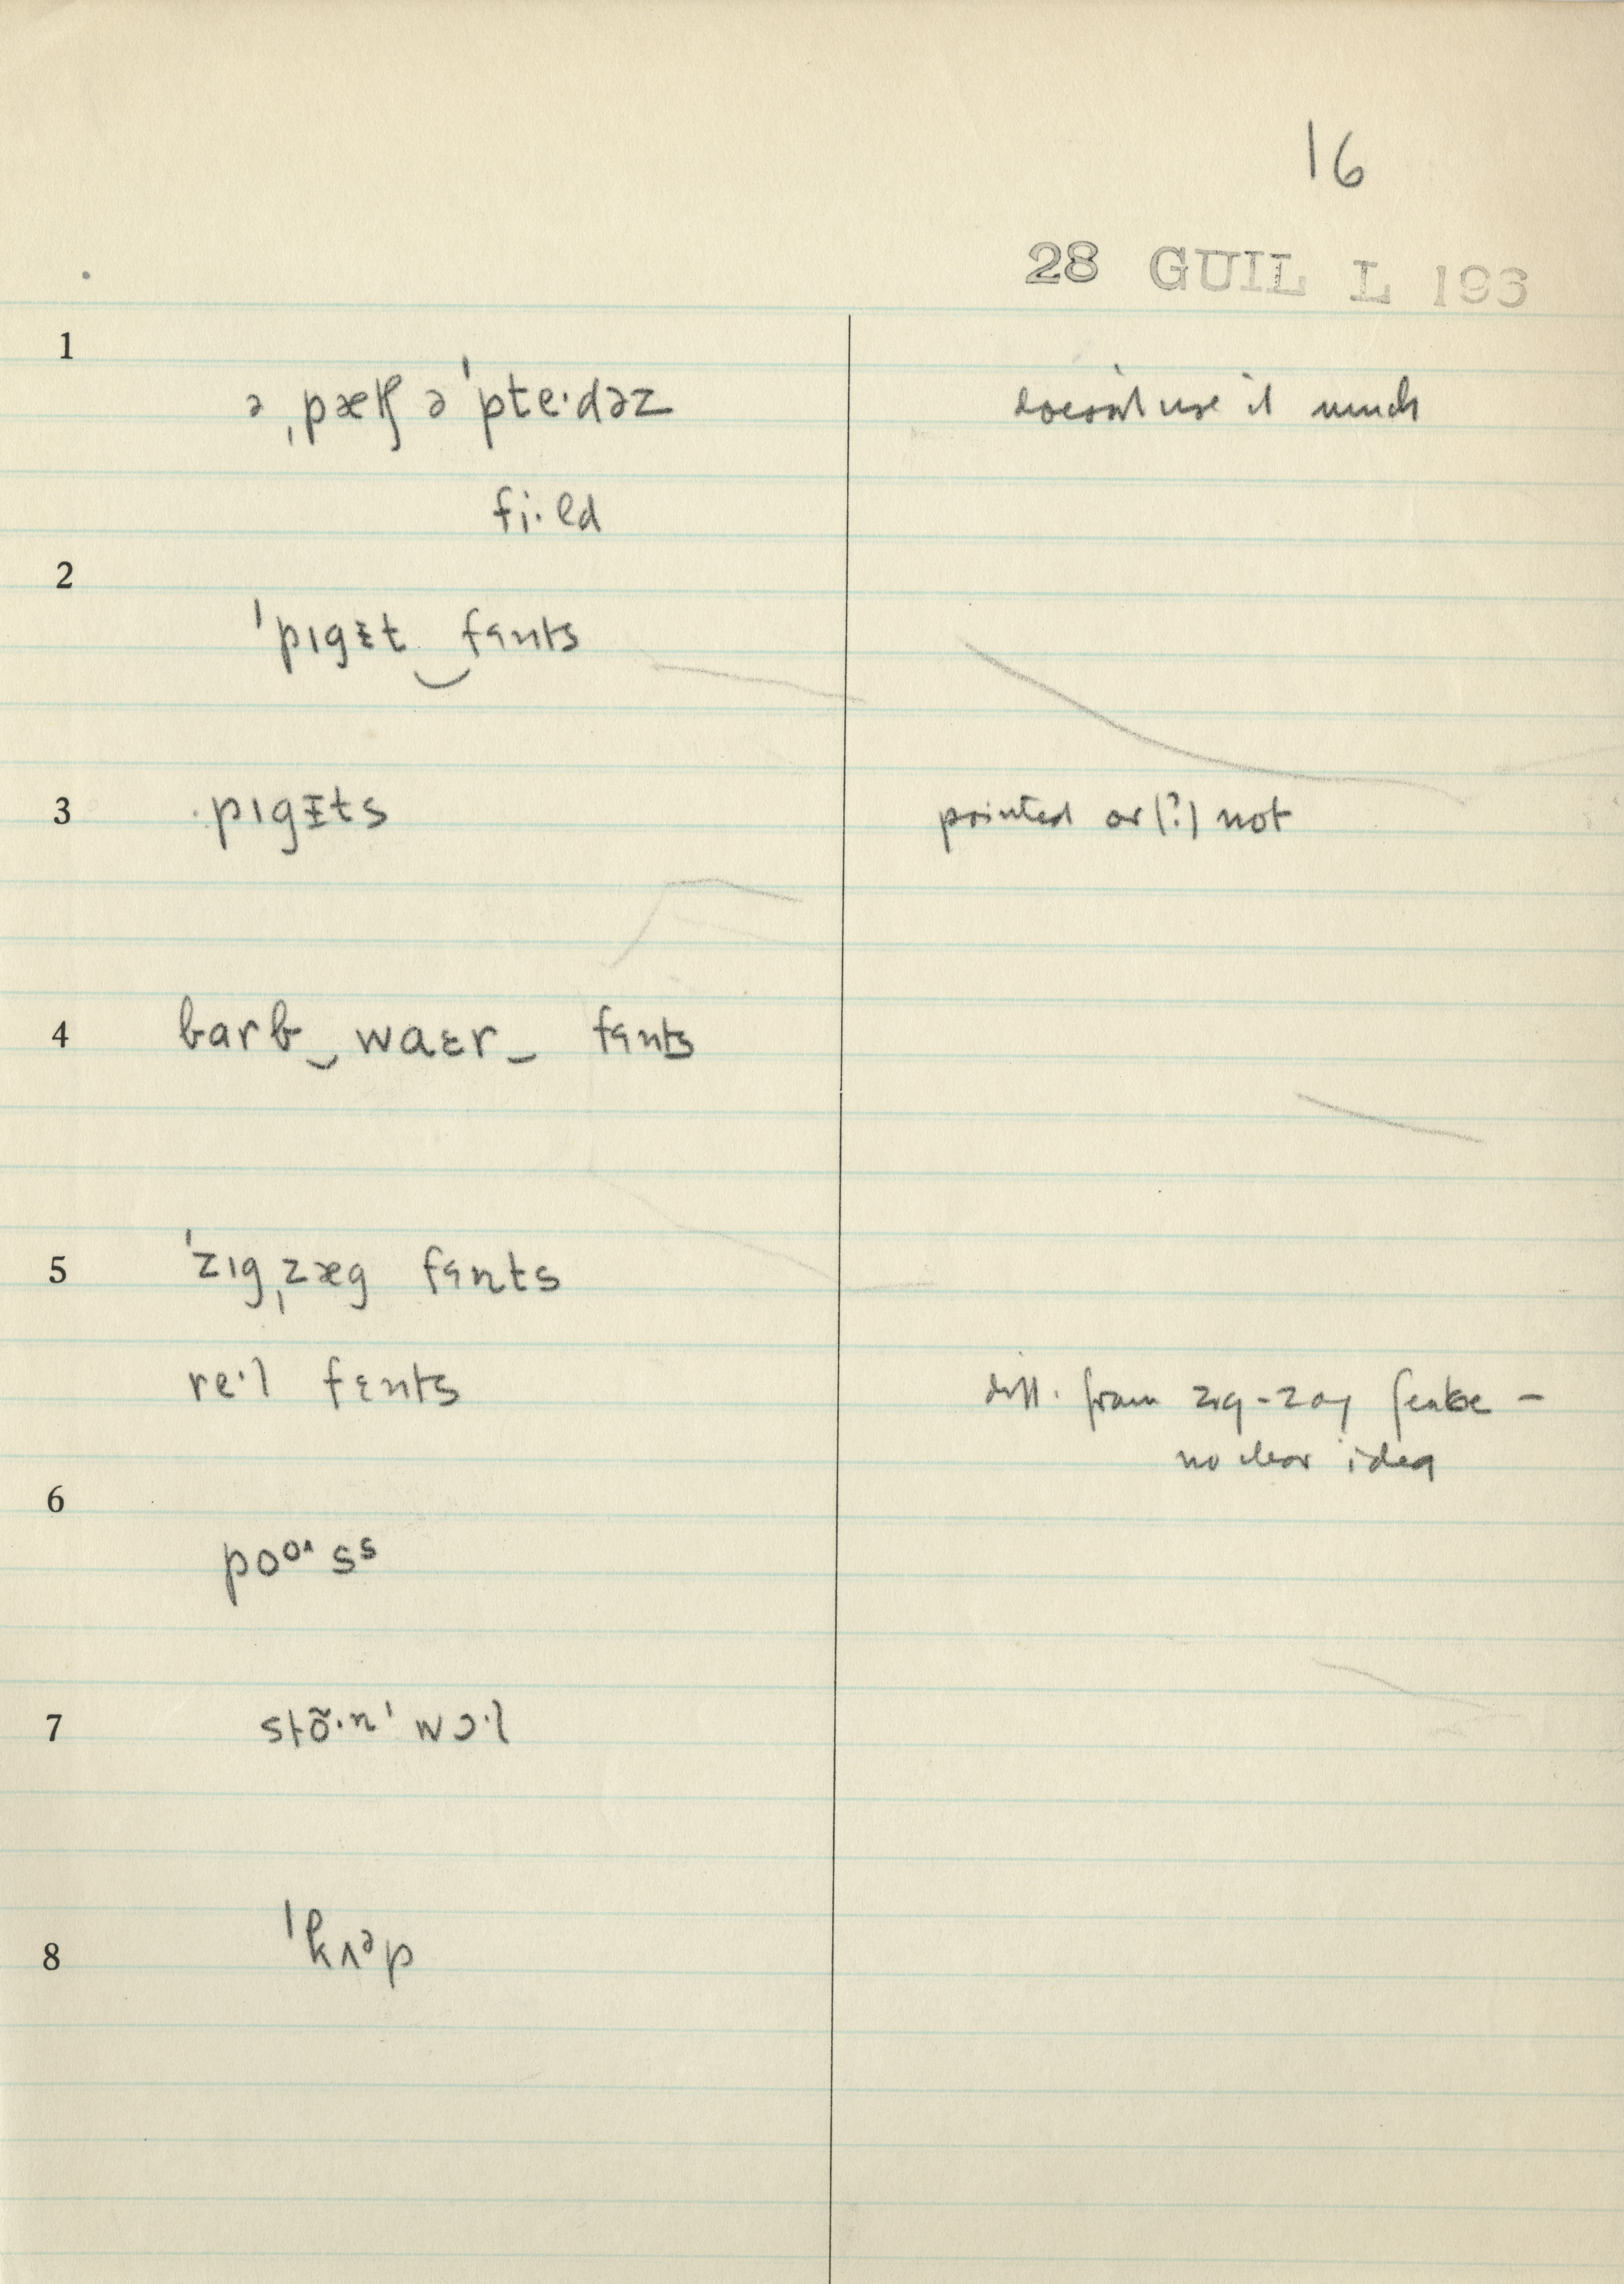 16
28 GUIL L 193
1
ə ˌpætʃ ə ˈpte·dəz doesn't use it much
fi·ld
2
ˈpɪgɪt‿fɛnts
3 pɪgɪts pointed or (?) not
4 barb‿waɛr‿ fɛnts
5 ˈzɪgˌzæg fɛnts
re·l fɛnts diff. from zig-zag fence –
no clear idea
6
7 stõ·nˈ wɔ·l
8